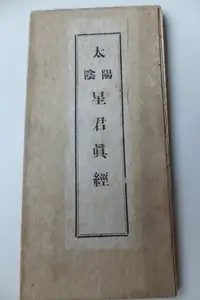 太陽陰星君眞經